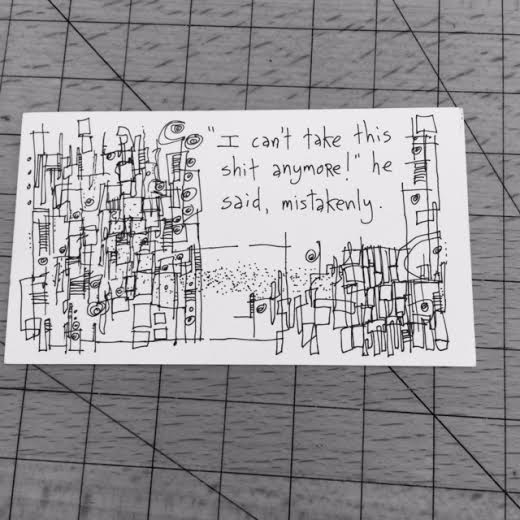 "I can't take this
shit anymore!" he
said, mistakenly.